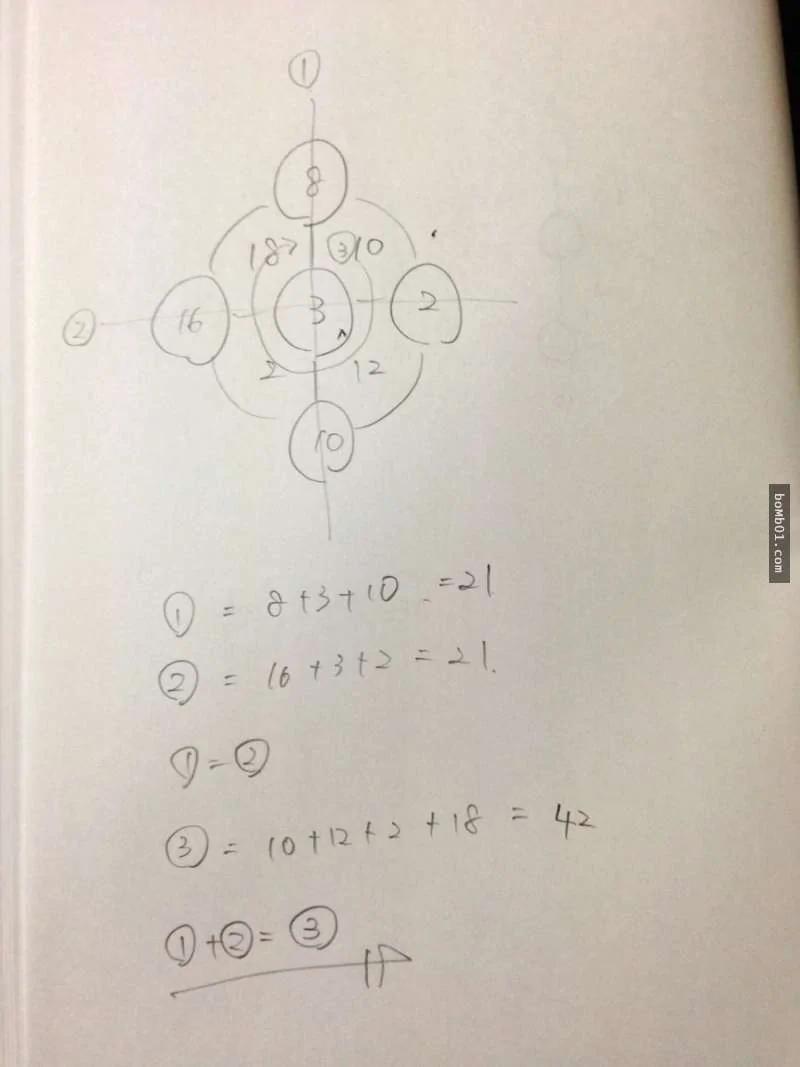 ①
8
18 ③ 10
② 16 3 2
2 12
10
① = 8+3+10 = 21
② = 16+3+2 = 21.
① = ②
③ = 10+12+2+18 = 42
①+②= ③
boMb01.com